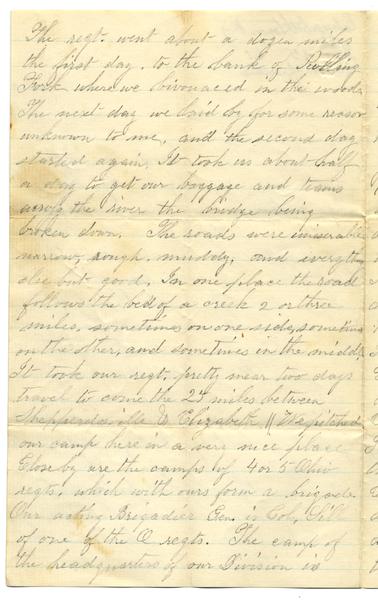 The regt. went about a dozen miles
the first day, to the bank of Rolling
Fork where we bivouaced in the woods
The next day we laid by for some reason
unknown to me, and the second day
started again. It took us about half
a day to get our baggage and teams
across the river the bridge being
broken down. The roads were miserable
narrow, rough, muddy, and everything
else but good. In one place the road
follows the bed of a creek 2 or three
miles, sometimes on one side, sometimes
on the other, and sometimes in the middle
It took our regt. pretty near two days
travel to come the 24 miles between
Shepperdsville & Elizabeth || We pitched
our camp here in a very nice place
Close by are the camps of 4 or 5 Ohio
regts. which with ours form a brigade
Our acting Brigadier Gen. is Col. Sill
of one of the O regts. The camp of
the headquarters of our Division is